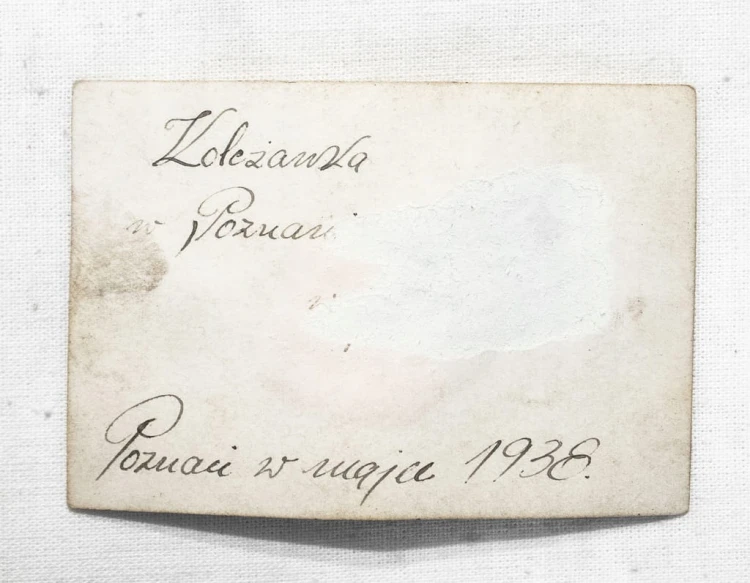 Koleżanka
w Poznani
Poznań w maju 1938.